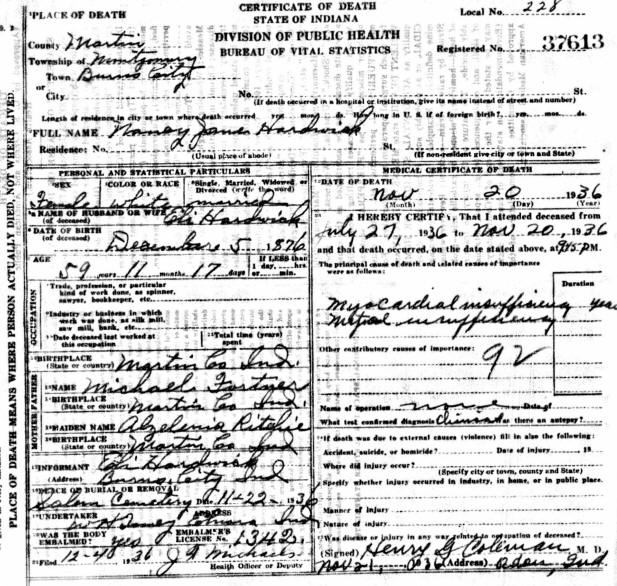 CERTIFICATE OF DEATH
STATE OF INDIANA
Local No. 228
1PLACE OF DEATH
DIVISION OF PUBLIC HEALTH
BUREAU OF VITAL STATISTICS
County Martin
Registered No. 37613
Township of
Town Burns City
or
City No. St.
(If death occurred in a hospital or institution, give its name instead of street and number)
Length of residence in city or town where death occurred yrs. mos. ds. How long in U. S. if of foreign birth? yrs. mos. ds.
FULL NAME Nancy Jane Hardwick
Residence: No. St.
(Usual place of abode) (If non-resident give city or town and State)
PERSONAL AND STATISTICAL PARTICULARS
SEX COLOR OR RACE Single, Married, Widowed or Divorced (write the word)
Female White married
NAME OF HUSBAND OR WIFE Eli Hardwick
(of deceased)
DATE OF BIRTH December 5 1876
(of deceased)
AGE 59 years 11 months 17 days If LESS than 1 day, hrs. or min.
OCCUPATION
Trade, profession, or particular kind of work done, as spinner, sawyer, bookkeeper, etc.
Industry or business in which work was done, as silk mill, saw mill, bank, etc.
Date deceased last worked at this occupation
Total time (years) spent
BIRTHPLACE Martin Co Ind.
(State or country)
FATHER
NAME Michael
BIRTHPLACE Martin Co Ind
(State or country)
MOTHER
MAIDEN NAME Ritchie
BIRTHPLACE Martin Co Ind
(State or country)
INFORMANT Eli Hardwick
(Address) Burns City Ind
PLACE OF BURIAL OR REMOVAL
Salem Cemetery Date 11-22-1936
UNDERTAKER ADDRESS
Ind
WAS THE BODY EMBALMED? yes EMBALMER'S LICENSE No. 1342
Filed 1936 J Michaels
Health Officer or Deputy
MEDICAL CERTIFICATE OF DEATH
DATE OF DEATH
Nov 20 1936
(Month) (Day) (Year)
I HEREBY CERTIFY, That I attended deceased from
July 27, 1936 to Nov. 20, 1936
and that death occurred, on the date stated above, at P.M.
The principal cause of death and related causes of importance were as follows:
Duration
Myocardial insufficiency years
Mitral insufficiency
Other contributory causes of importance: 92
Name of operation none Date of
What test confirmed diagnosis Clinical Was there an autopsy?
If death was due to external causes (violence) fill in also the following:
Accident, suicide, or homicide? Date of injury 19
Where did injury occur?
(Specify city or town, county and State)
Specify whether injury occurred in industry, in home, or in public place.
Manner of injury
Nature of injury
Was disease or injury in any way related to occupation of deceased?
(Signed) Henry G Coleman M. D.
Nov 21, 1936 (Address) Odon, Ind
PLACE OF DEATH MEANS WHERE PERSON ACTUALLY DIED, NOT WHERE LIVED.